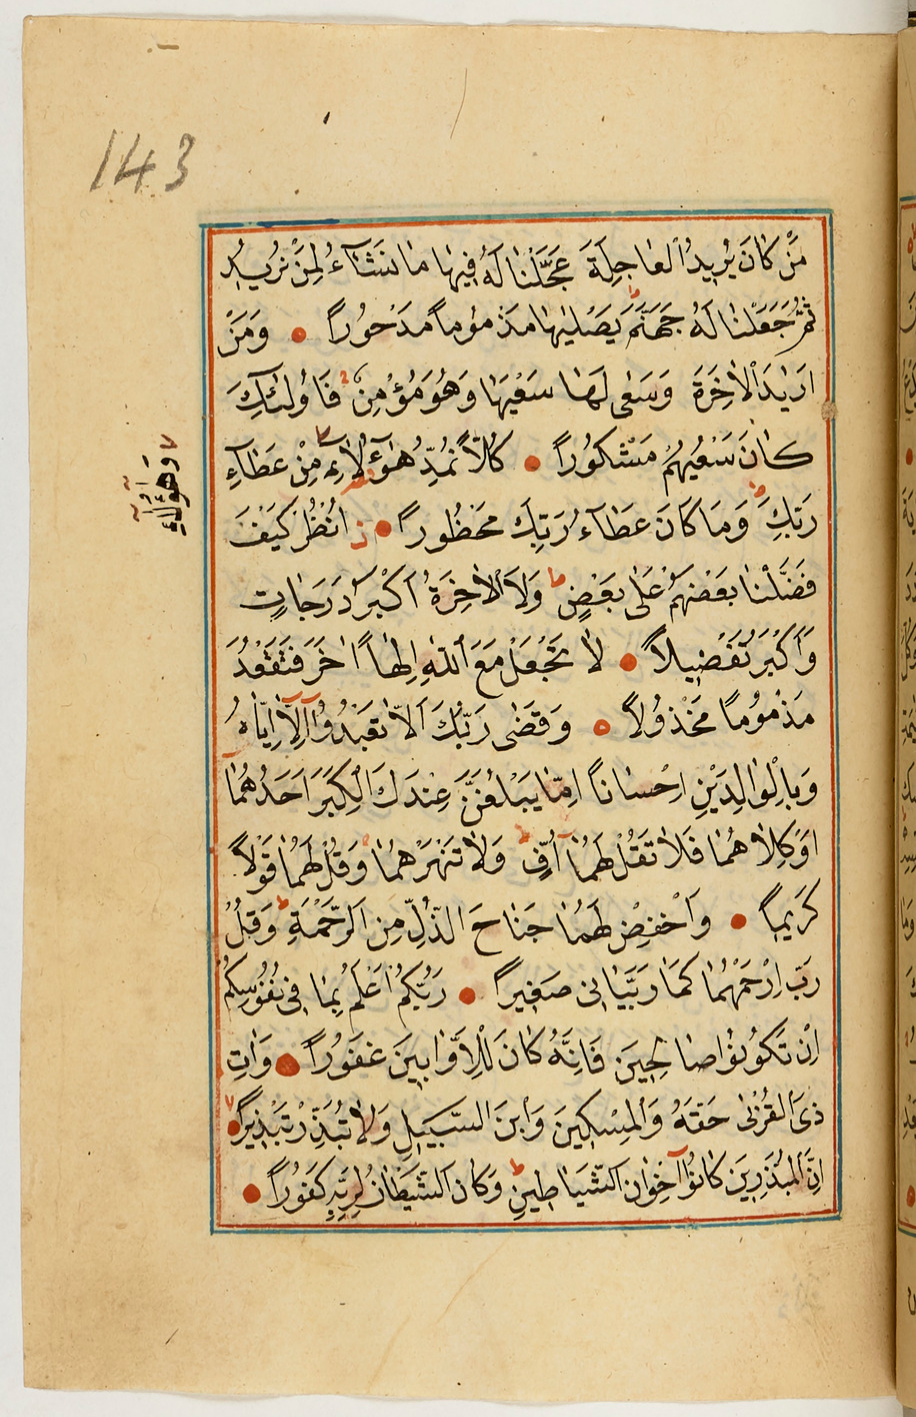 143
مَّنْ كَانَ يُرِيدُ الْعَاجِلَةَ عَجَّلْنَا لَهُ فِيهَا مَا نَشَآءُ لِمَنْ نُرِيدُ
ثُمَّ جَعَلْنَا لَهُ جَهَنَّمَ يَصْلٰيهَا مَذْمُومًا مَدْحُورًا ● وَمَنْ
اَرَادَ الْاٰخِرَةَ وَسَعٰى لَهَا سَعْيَهَا وَهُوَ مُؤْمِنٌ فَاُولٰئِكَ
كَانَ سَعْيُهُمْ مَشْكُورًا ● كُلًّا نُمِدُّ هٰٓؤُلَآءِ مِنْ عَطَآءِ
وَهٰٓؤُلَآءِ
رَبِّكَ وَمَا كَانَ عَطَآءُ رَبِّكَ مَحْظُورًا ● اُنْظُرْ كَيْفَ
فَضَّلْنَا بَعْضَهُمْ عَلٰى بَعْضٍ وَلَلْاٰخِرَةُ اَكْبَرُ دَرَجَاتٍ
وَاَكْبَرُ تَفْضِيلًا ● لَا تَجْعَلْ مَعَ اللّٰهِ اِلٰهًا اٰخَرَ فَتَقْعُدَ
مَذْمُومًا مَخْذُولًا ● وَقَضٰى رَبُّكَ اَلَّا تَعْبُدُوٓا اِلَّآ اِيَّاهُ
وَبِالْوَالِدَيْنِ اِحْسَانًا اِمَّا يَبْلُغَنَّ عِنْدَكَ الْكِبَرَ اَحَدُهُمَآ
اَوْ كِلَاهُمَا فَلَا تَقُلْ لَهُمَآ اُفٍّ وَلَا تَنْهَرْهُمَا وَقُلْ لَهُمَا قَوْلًا
كَرِيمًا ● وَاخْفِضْ لَهُمَا جَنَاحَ الذُّلِّ مِنَ الرَّحْمَةِ وَقُلْ
رَبِّ ارْحَمْهُمَا كَمَا رَبَّيَانِي صَغِيرًا ● رَبُّكُمْ اَعْلَمُ بِمَا فِي نُفُوسِكُمْ
اِنْ تَكُونُوا صَالِحِينَ فَاِنَّهُ كَانَ لِلْاَوَّابِينَ غَفُورًا ● وَاٰتِ
ذَى الْقُرْبٰى حَقَّهُ وَالْمِسْكِينَ وَابْنَ السَّبِيلِ وَلَا تُبَذِّرْ تَبْذِيرًا ●
اِنَّ الْمُبَذِّرِينَ كَانُوٓا اِخْوَانَ الشَّيَاطِينِ وَكَانَ الشَّيْطَانُ لِرَبِّهِ كَفُورًا ●